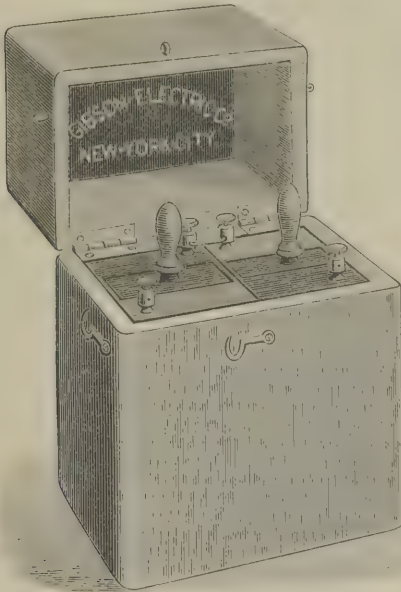 GIBSON ELECTRIC Co
NEW-YORK CITY